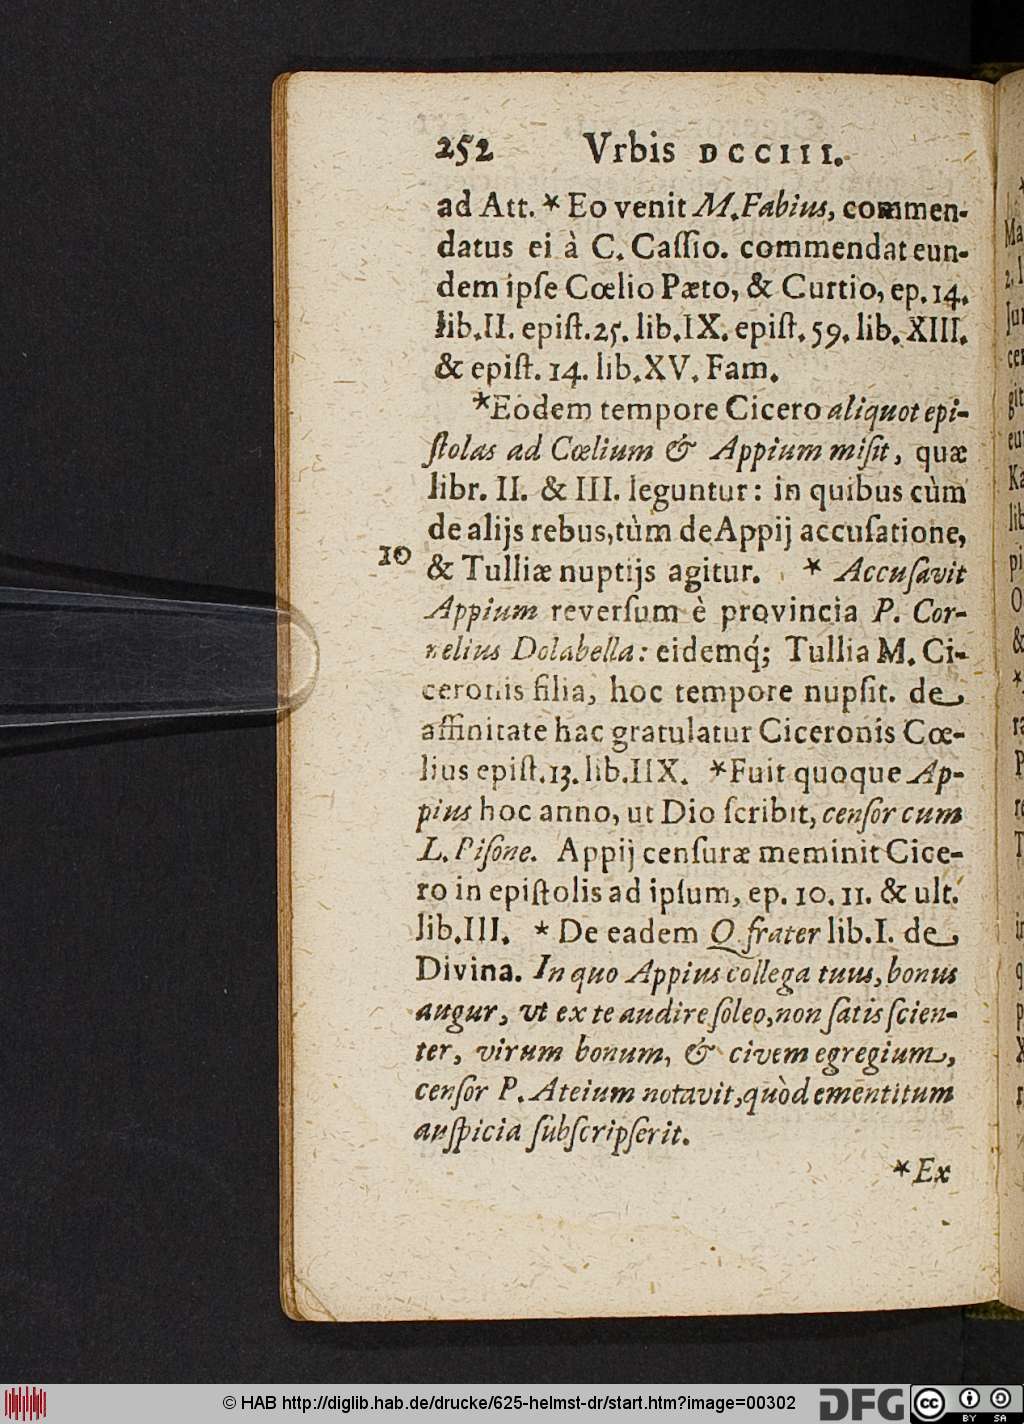 252 Vrbis DCCIII.
ad Att. * Eo venit M. Fabius, commen-
datus ei à C. Caſſio. commendat eun-
dem ipſe Cœlio Pæto, & Curtio, ep. 14.
lib. II. epiſt. 25. lib. IX. epiſt. 59. lib. XIII.
& epiſt. 14. lib. XV. Fam.
*Eodem tempore Cicero aliquot epi-
ſtolas ad Cœlium & Appium miſit, quæ
libr. II. & III. leguntur: in quibus cùm
de alijs rebus, tùm de Appij accuſatione,
10 & Tulliæ nuptijs agitur. * Accuſavit
Appium reverſum è provincia P. Cor-
nelius Dolabella: eidemq́; Tullia M. Ci-
ceronis filia, hoc tempore nupſit. de
affinitate hac gratulatur Ciceronis Cœ-
lius epiſt. 13. lib. IIX. *Fuit quoque Ap-
pius hoc anno, ut Dio ſcribit, cenſor cum
L. Piſone. Appij cenſuræ meminit Cice-
ro in epiſtolis ad ipſum, ep. 10. 11. & ult.
lib. III. * De eadem Q. frater lib. I. de
Divina. In quo Appius collega tuus, bonus
augur, ut ex te audire ſoleo, non ſatis ſcien-
ter, virum bonum, & civem egregium,
cenſor P. Ateium notavit, quòd ementitum
auſpicia ſubſcripſerit.
*Ex
© HAB http://diglib.hab.de/drucke/625-helmst-dr/start.htm?image=00302
DFG
cc BY SA